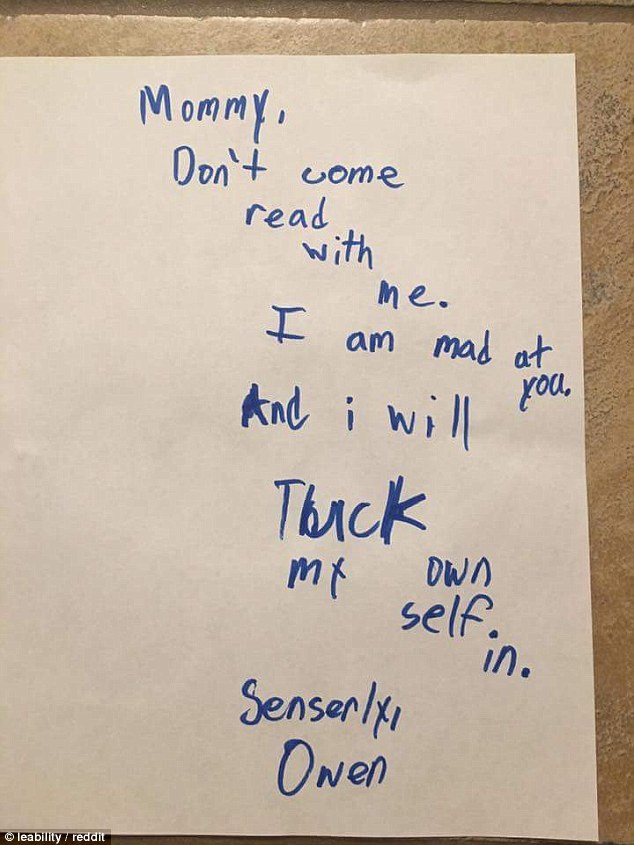 Mommy,
Don't come
read
with
me.
I am mad at
you.
And i will
Tuck
my own
self.
in.
Senserly,
Owen
© leability / reddit